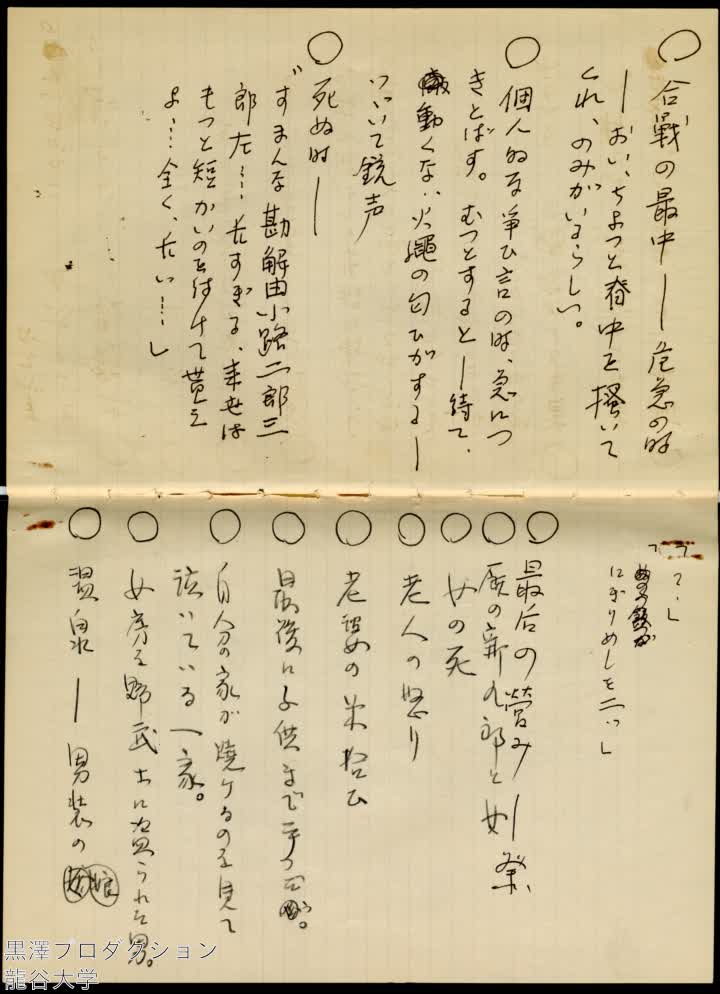 ○合戦の最中 ― 危急の時
― おい、ちよつと脊中を掻いて
くれ、のみがいるらしい。
○個人的な争ひ言の時、急につ
きとばす。むつとすると ― 待て、
動くな、火縄の匂ひがする ―
つゞいて銃声
○死ぬ時 ―
すまんな 勘解由小路二郎三
郎左…長すぎる、来世は
もつと短かいのを付けて貰え
よ…全く、長い……」
「？・」
「
にぎりめしを二つ」
○最后の営み ―
○の新九郎と
○女の死
○老人の怒り
○老婆の米拾ひ
○最後に子供まで
○自分の家が焼けるのを見て
泣いている一家。
○女房を野武士に盗られた男。
○温泉 ― 男装の娘
黒澤プロダクション
龍谷大学